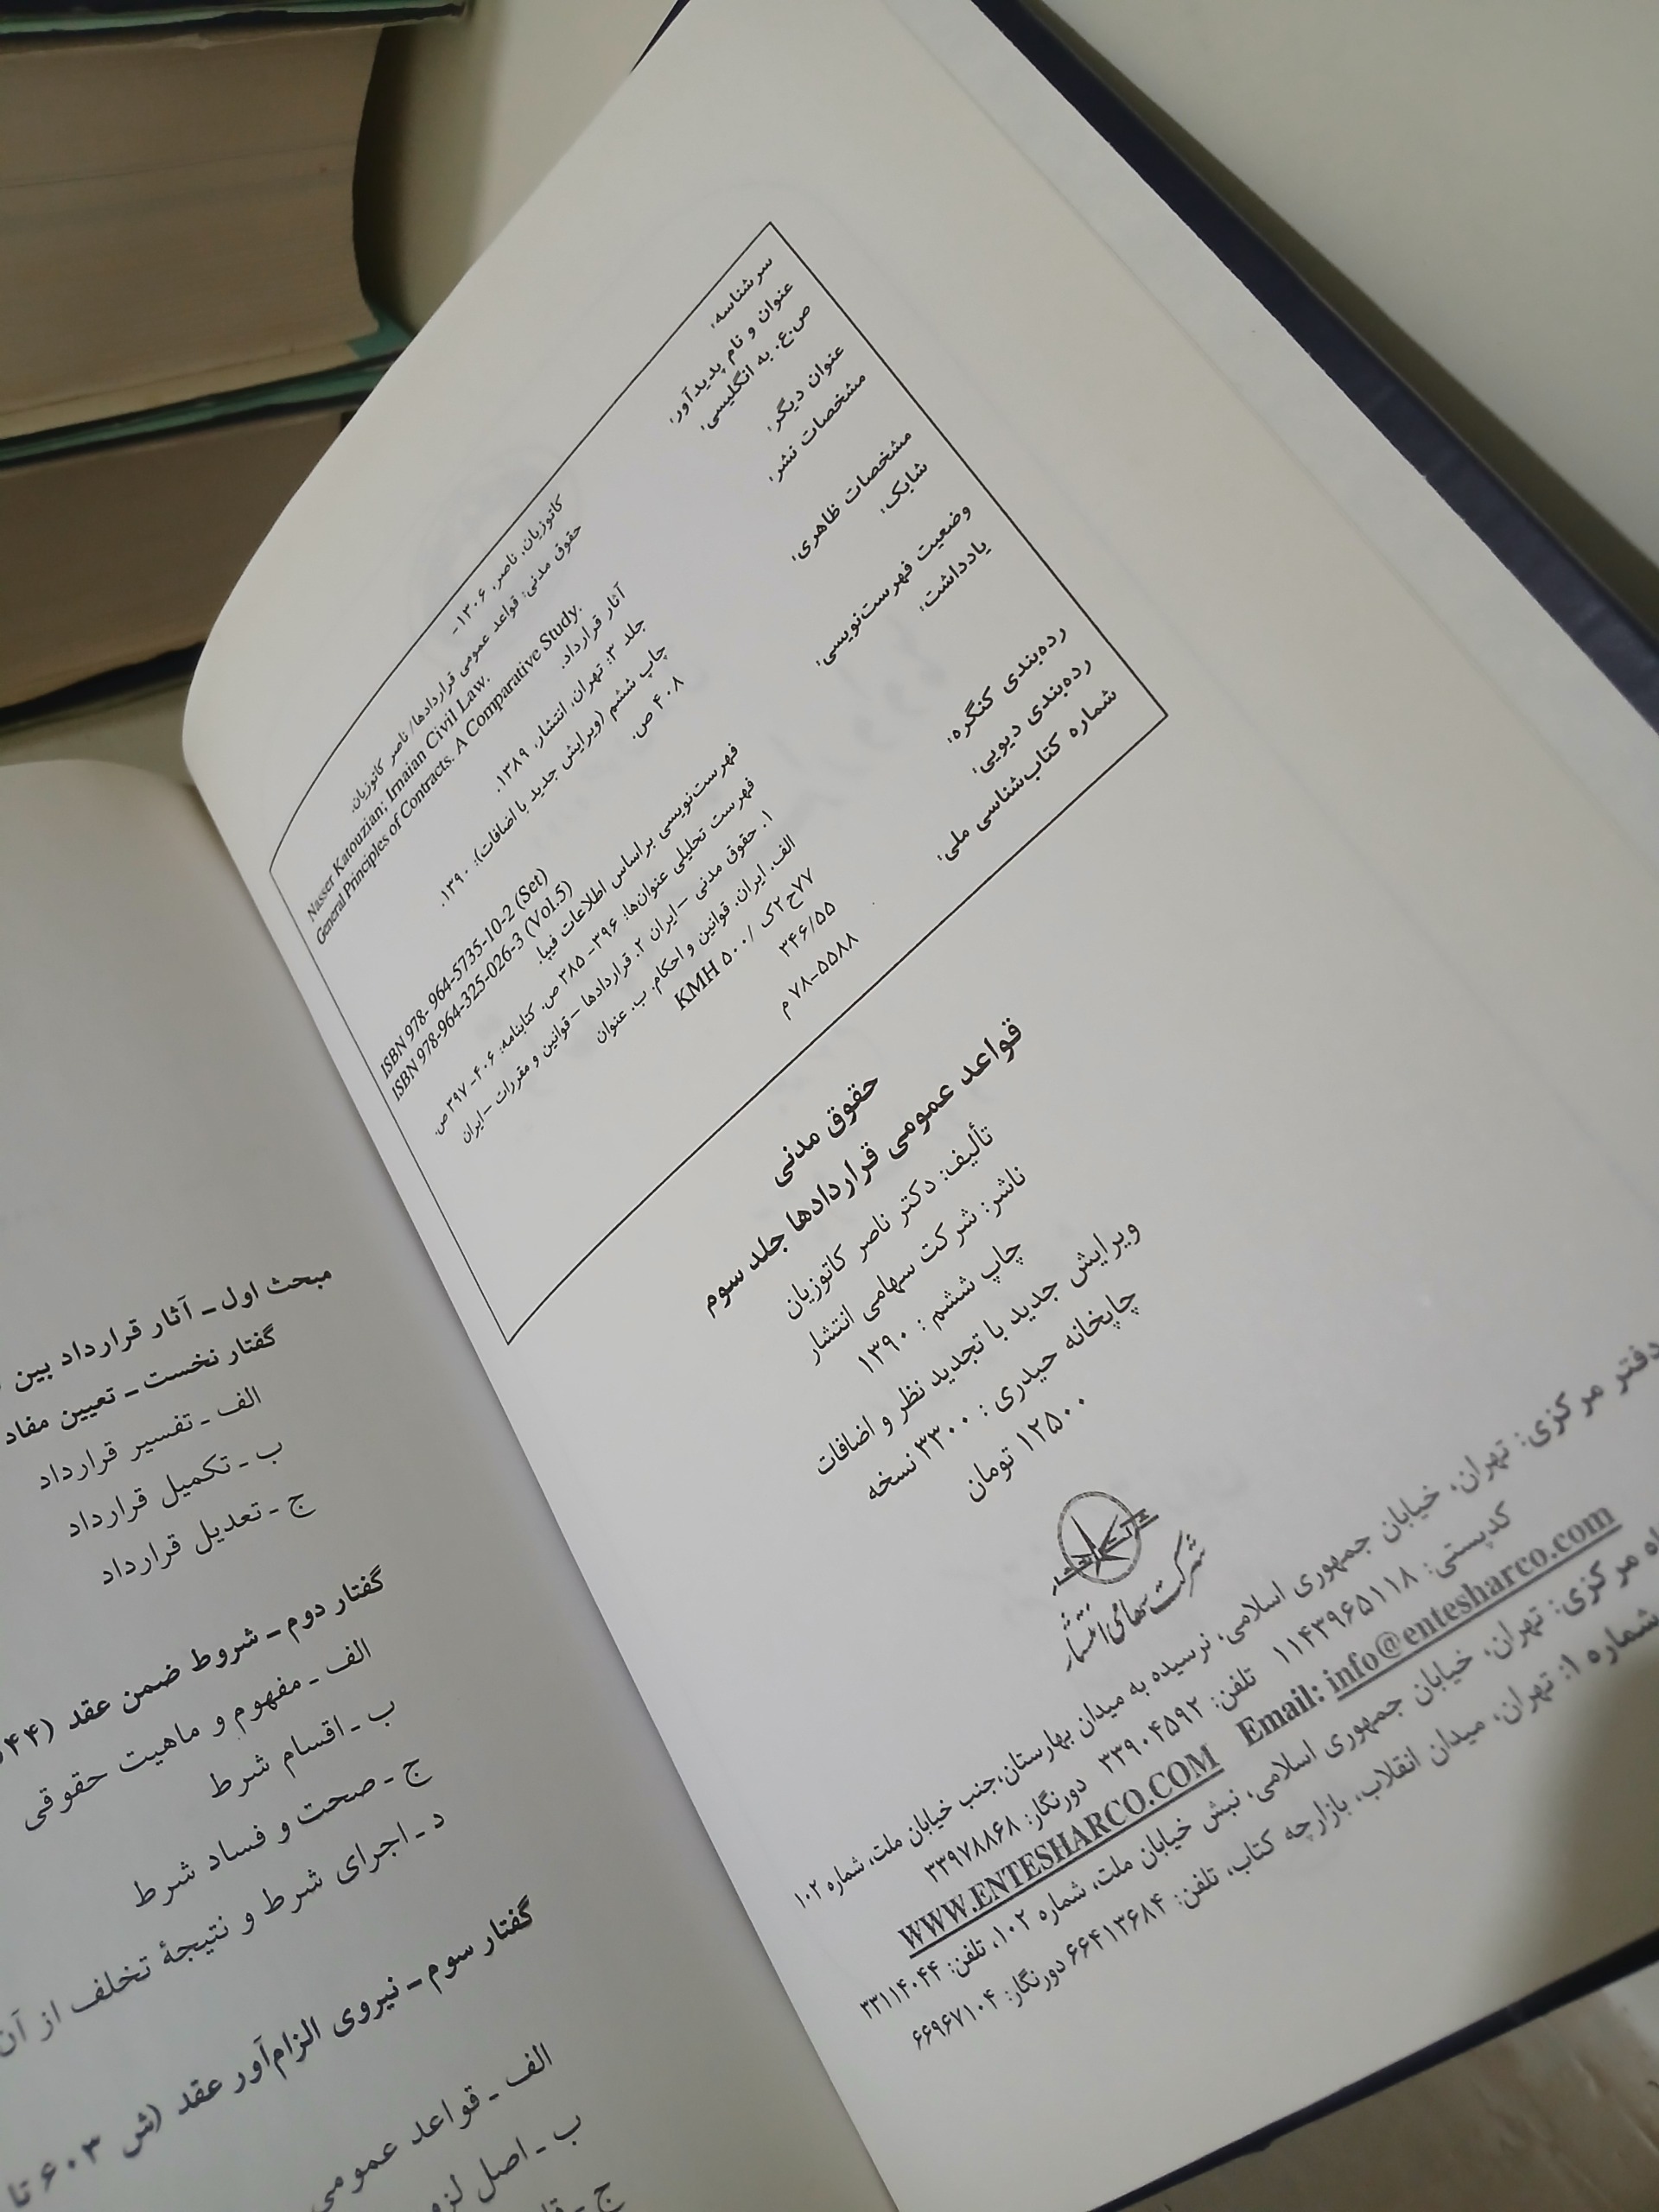 سرشناسه: کاتوزیان، ناصر، ۱۳۰۶-
عنوان و نام پدیدآور: حقوق مدنی: قواعد عمومی قراردادها/ ناصر کاتوزیان.
ص.ع. به انگلیسی: Nasser Katouzian; Irnaian Civil Law.
General Principles of Contracts. A Comparative Study.
عنوان دیگر: آثار قرارداد.
مشخصات نشر: جلد ۳: تهران، انتشار، ۱۳۸۹.
چاپ ششم (ویرایش جدید با اضافات): ۱۳۹۰.
مشخصات ظاهری: ۴۰۸ ص.
شابک: ISBN 978- 964-5735-10-2 (Set)
ISBN 978-964-325-026-3 (Vol.5)
وضعیت فهرست‌نویسی: فهرست‌نویسی براساس اطلاعات فیپا.
یادداشت: فهرست تحلیلی عنوان‌ها: ۳۹۶- ۳۸۵ ص. کتابنامه: ۴۰۶- ۳۹۷ ص.
۱. حقوق مدنی –ایران ۲. قراردادها –قوانین و مقررات –ایران
الف. ایران. قوانین و احکام. ب. عنوان
رده‌بندی کنگره: ۷۷ح۲ک /۵۰۰ KMH
رده‌بندی دیویی: ۳۴۶/۵۵
شماره کتاب‌شناسی ملی: ۵۵۸۸-۷۸ م
حقوق مدنی
قواعد عمومی قراردادها جلد سوم
تألیف: دکتر ناصر کاتوزیان
ناشر: شرکت سهامی انتشار
چاپ ششم: ۱۳۹۰
ویرایش جدید با تجدید نظر و اضافات
چاپخانه حیدری: ۳۳۰۰ نسخه
۱۲۵۰۰ تومان
شرکت سهامی انتشار
دفتر مرکزی: تهران، خیابان جمهوری اسلامی، نرسیده به میدان بهارستان، جنب خیابان ملت، شماره ۱۰۲
کدپستی: ۱۱۴۳۹۶۵۱۱۸ تلفن: ۳۳۹۰۴۵۹۲ دورنگار: ۳۳۹۷۸۸۶۸
WWW.ENTESHARCO.COM Email: info@entesharco.com
مرکزی: تهران، خیابان جمهوری اسلامی، نبش خیابان ملت، شماره ۱۰۲، تلفن: ۳۳۱۱۴۰۴۴
شماره ۱: تهران، میدان انقلاب، بازارچه کتاب، تلفن: ۶۶۴۱۳۶۸۴ دورنگار: ۶۶۹۶۷۱۰۴
مبحث اول ـ آثار قرارداد بین
گفتار نخست ـ تعیین مفاد
الف ـ تفسیر قرارداد
ب ـ تکمیل قرارداد
ج ـ تعدیل قرارداد
گفتار دوم ـ شروط ضمن عقد
الف ـ مفهوم و ماهیت حقوقی
ب ـ اقسام شرط
ج ـ صحت و فساد شرط
د ـ اجرای شرط و نتیجهٔ تخلف از آن
گفتار سوم ـ نیروی الزام‌آور عقد (ش ۶۰۳ تا
الف ـ قواعد عمومی
ب ـ اصل
ج ـ